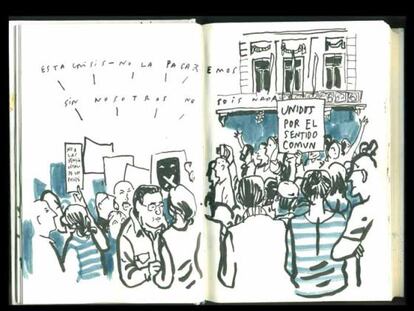 ESTA CRISIS – NO LA PAGAREMOS
SIN NOSOTROS NO SOIS NADA
UNIDOS
POR EL
SENTIDO
COMUN